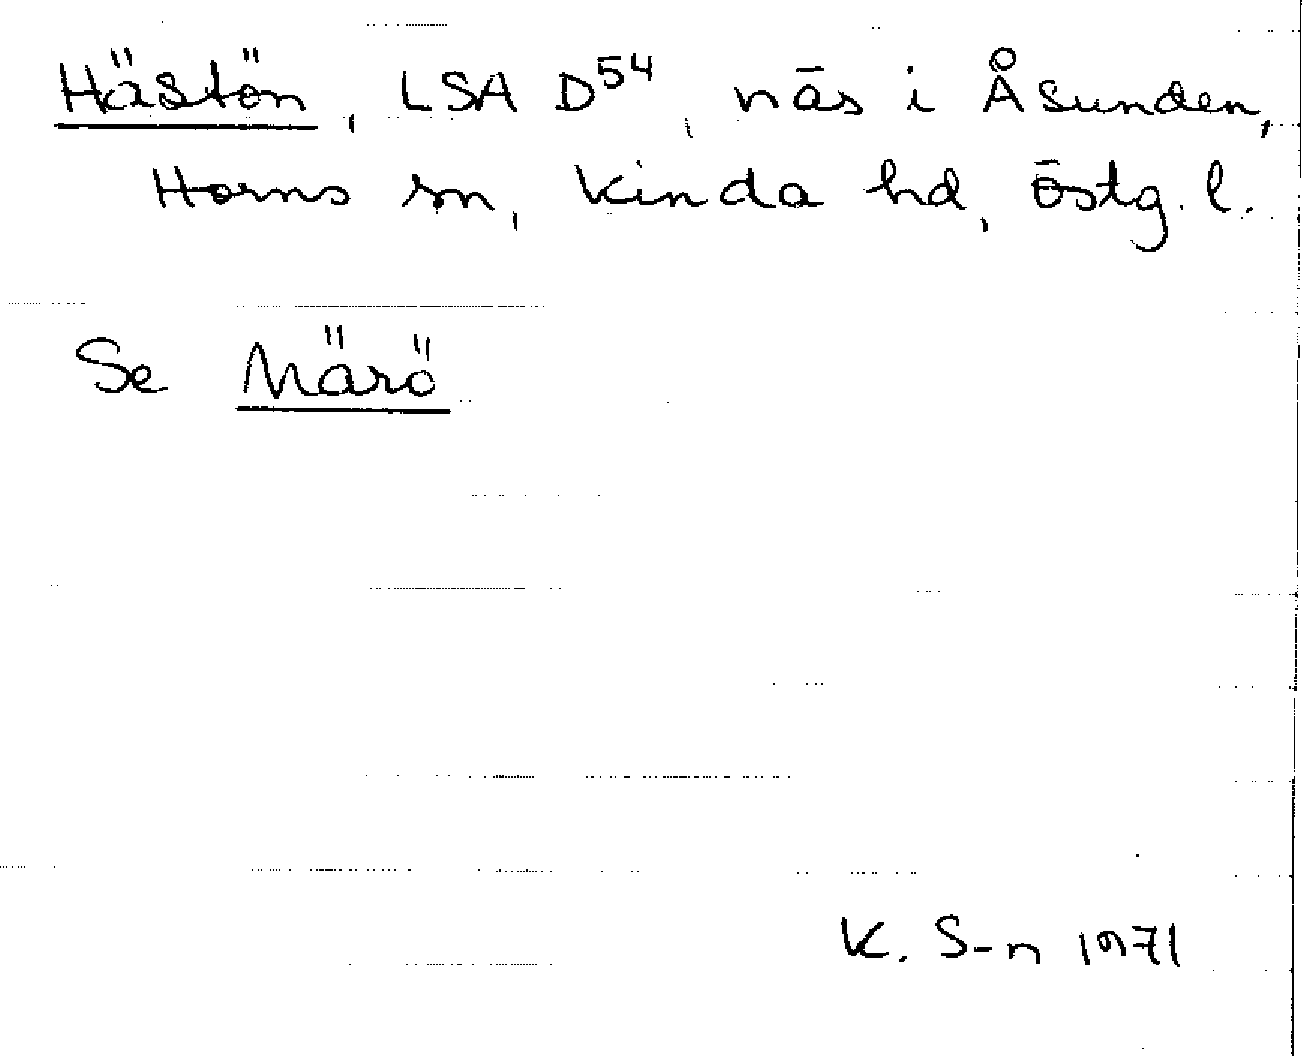 Hästön, LSA D54, näs i Åsunden,
Horns sn, Kinda hd, Östg. l.
Se Märö
K. S-n 1971